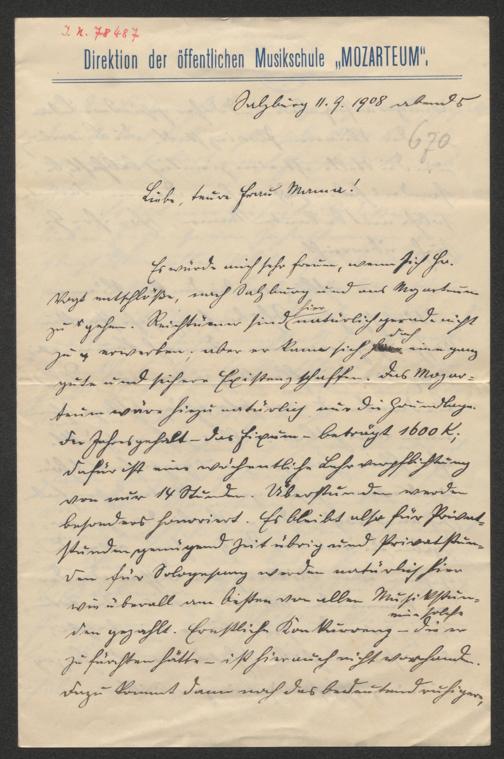 I. N. 78487
Direktion der öffentlichen Musikschule „MOZARTEUM“.
Salzburg 11. 9. 1908 abends
670
Liebe, teure Frau Mama!
Es würde mich sehr freuen, wenn sich Hr.
Vogt entschlöße, nach Salzburg und ans Mozarteum
zu gehen. Reichtümer sind hier natürlich gerade nicht
zu erwerben; aber er kann sich doch eine ganz
gute und sichere Existenz schaffen. Das Mozar-
teum wäre hiezu natürlich nur die Grundlage.
Der Jahresgehalt – das Fixum – beträgt 1600 K;
dafür ist eine wöchentliche Lehrverpflichtung
von nur 14 Stunden. Überstunden werden
besonders honoriert. Es bleibt also für Privat-
stunden genügend Zeit übrig und Privatstun-
den für Sologesang werden natürlich hier
wie überall am besten von allen Musikstun-
den gezahlt. Ernstliche Konkurrenz – eine solche die er
zu fürchten hätte – ist hier auch nicht vorhanden.
Dazu kommt dann noch das bedeutend ruhigere,